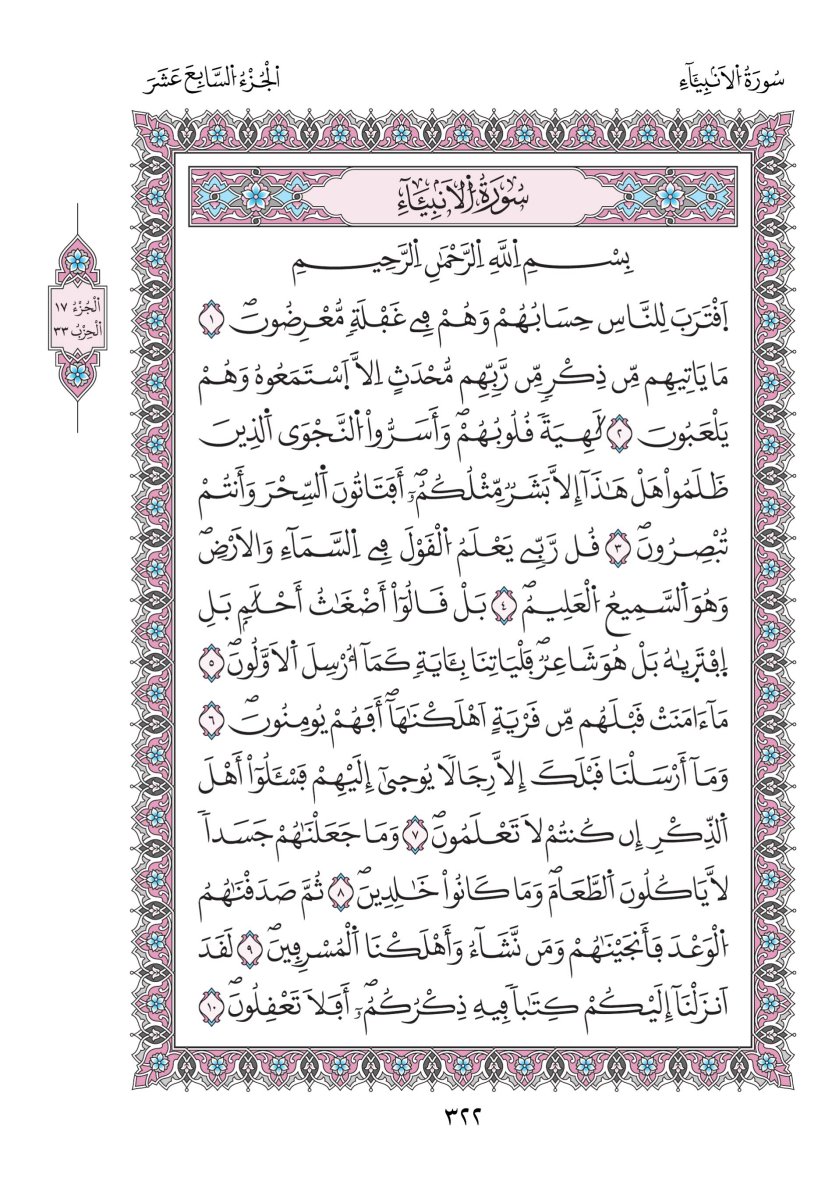 سُورَةُ اُ۬لَانۢبِيَآءِ
اَ۬لْجُزْءُ اُ۬لسَّابِعَ عَشَرَ
سُورَةُ اُ۬لَانۢبِيَآءِ
بِسْمِ اِ۬للَّهِ اِ۬لرَّحْمَٰنِ اِ۬لرَّحِيمِ
اَ۪قْتَرَبَ لِلنَّاسِ حِسَابُهُمْ وَهُمْ فِے غَفْلَةٖ مُّعْرِضُونَۖ ١
مَا يَاتِيهِم مِّن ذِكْرٖ مِّن رَّبِّهِم مُّحْدَثٍ اِلَّا اَ۪سْتَمَعُوهُ وَهُمْ
يَلْعَبُونَ ٢ لَٰهِيَةٗ قُلُوبُهُمْۖ وَأَسَرُّواْ اُ۬لنَّجْوَى اَ۬لذِينَ
ظَلَمُواْ هَلْ هَٰذَآ إِلَّا بَشَرٞ مِّثْلُكُمُۥٓۖ أَفَتَاتُونَ اَ۬لسِّحْرَ وَأَنتُمْ
تُبْصِرُونَۖ ٣ قُل رَّبِّے يَعْلَمُ اُ۬لْقَوْلَ فِے اِ۬لسَّمَآءِ وَالَارْضِۖ
وَهُوَ اَ۬لسَّمِيعُ اُ۬لْعَلِيمُۖ ٤ بَلْ قَالُوٓاْ أَضْغَٰثُ أَحْلَٰمِۢ بَلِ
اِ۪فْتَر۪يٰهُ بَلْ هُوَ شَاعِرٞۖ فَلْيَاتِنَا بِـَٔايَةٖ كَمَآ أُرْسِلَ اَ۬لَاوَّلُونَۖ ٥
مَآ ءَامَنَتْ قَبْلَهُم مِّن قَرْيَةٍ اَهْلَكْنَٰهَآۖ أَفَهُمْ يُومِنُونَۖ ٦
وَمَآ أَرْسَلْنَا قَبْلَكَ إِلَّا رِجَالٗا يُوح۪ىٰٓ إِلَيْهِمْ فَسْـَٔلُوٓاْ أَهْلَ
اَ۬لذِّكْرِ إِن كُنتُمْ لَا تَعْلَمُونَۖ ٧ وَمَا جَعَلْنَٰهُمْ جَسَداٗ
لَّا يَاكُلُونَ اَ۬لطَّعَامَۖ وَمَا كَانُواْ خَٰلِدِينَۖ ٨ ثُمَّ صَدَقْنَٰهُمُ
اُ۬لْوَعْدَ فَأَنجَيْنَٰهُمْ وَمَن نَّشَآءُ وَأَهْلَكْنَا اَ۬لْمُسْرِفِينَۖ ٩ لَقَدَ
اَنزَلْنَآ إِلَيْكُمْ كِتَٰباٗ فِيهِ ذِكْرُكُمُۥٓۖ أَفَلَا تَعْقِلُونَۖ ١٠
اَ۬لْجُزْءُ ١٧
اَ۬لْحِزْبُ ٣٣
٣٢٢